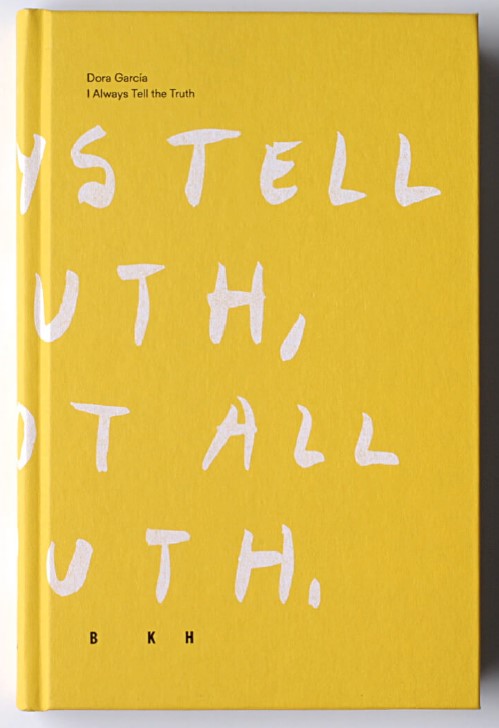 Dora García
I Always Tell the Truth
YS TELL
UTH,
OT ALL
UTH.
B K H